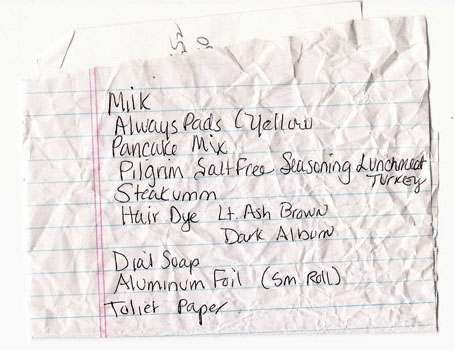 Milk
Always Pads (Yellow
Pancake Mix
Pilgrim Salt Free Seasoning Lunchmeat
Turkey
Steakumm
Hair Dye Lt Ash Brown
Dark Alburn
Dial Soap
Aluminum Foil (Sm Roll)
Toliet Paper